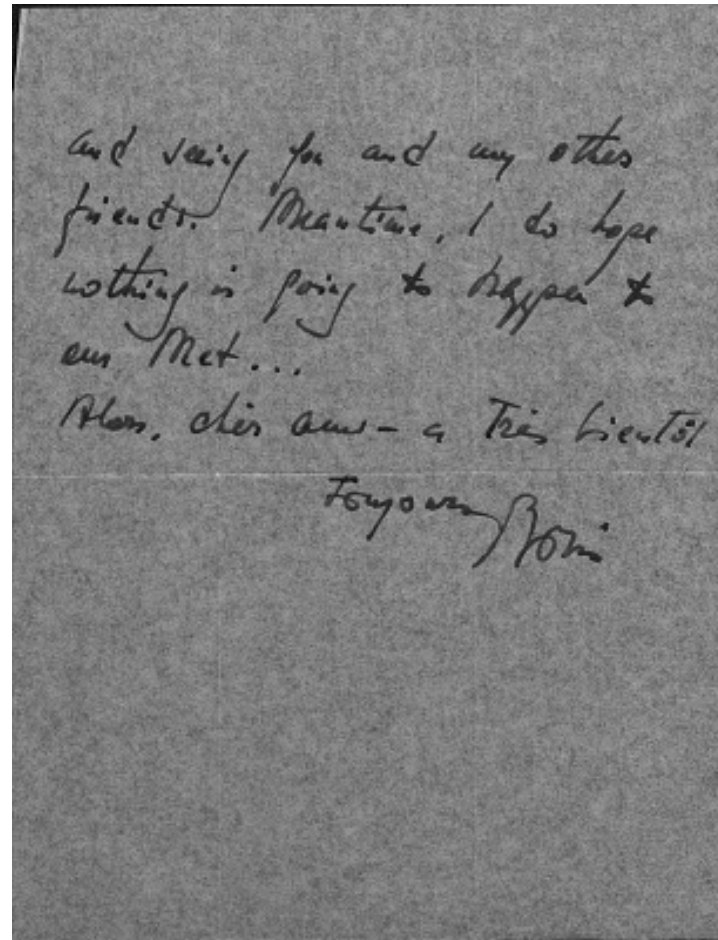 and seeing you and my other
friends. Meantime, I do hope
nothing is going to happen to
our Met...
Alors, cher ami - a Très bientôt
Toujours Boris